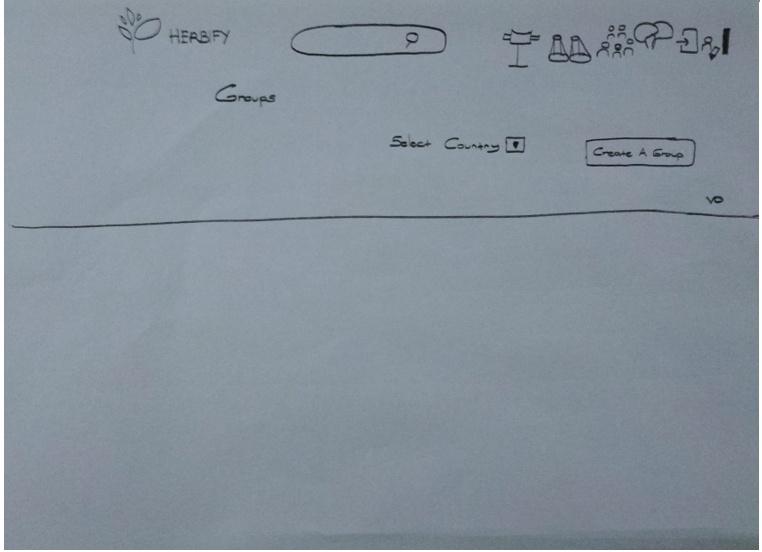 HERBIFY
Groups
Select Country
Create A Group